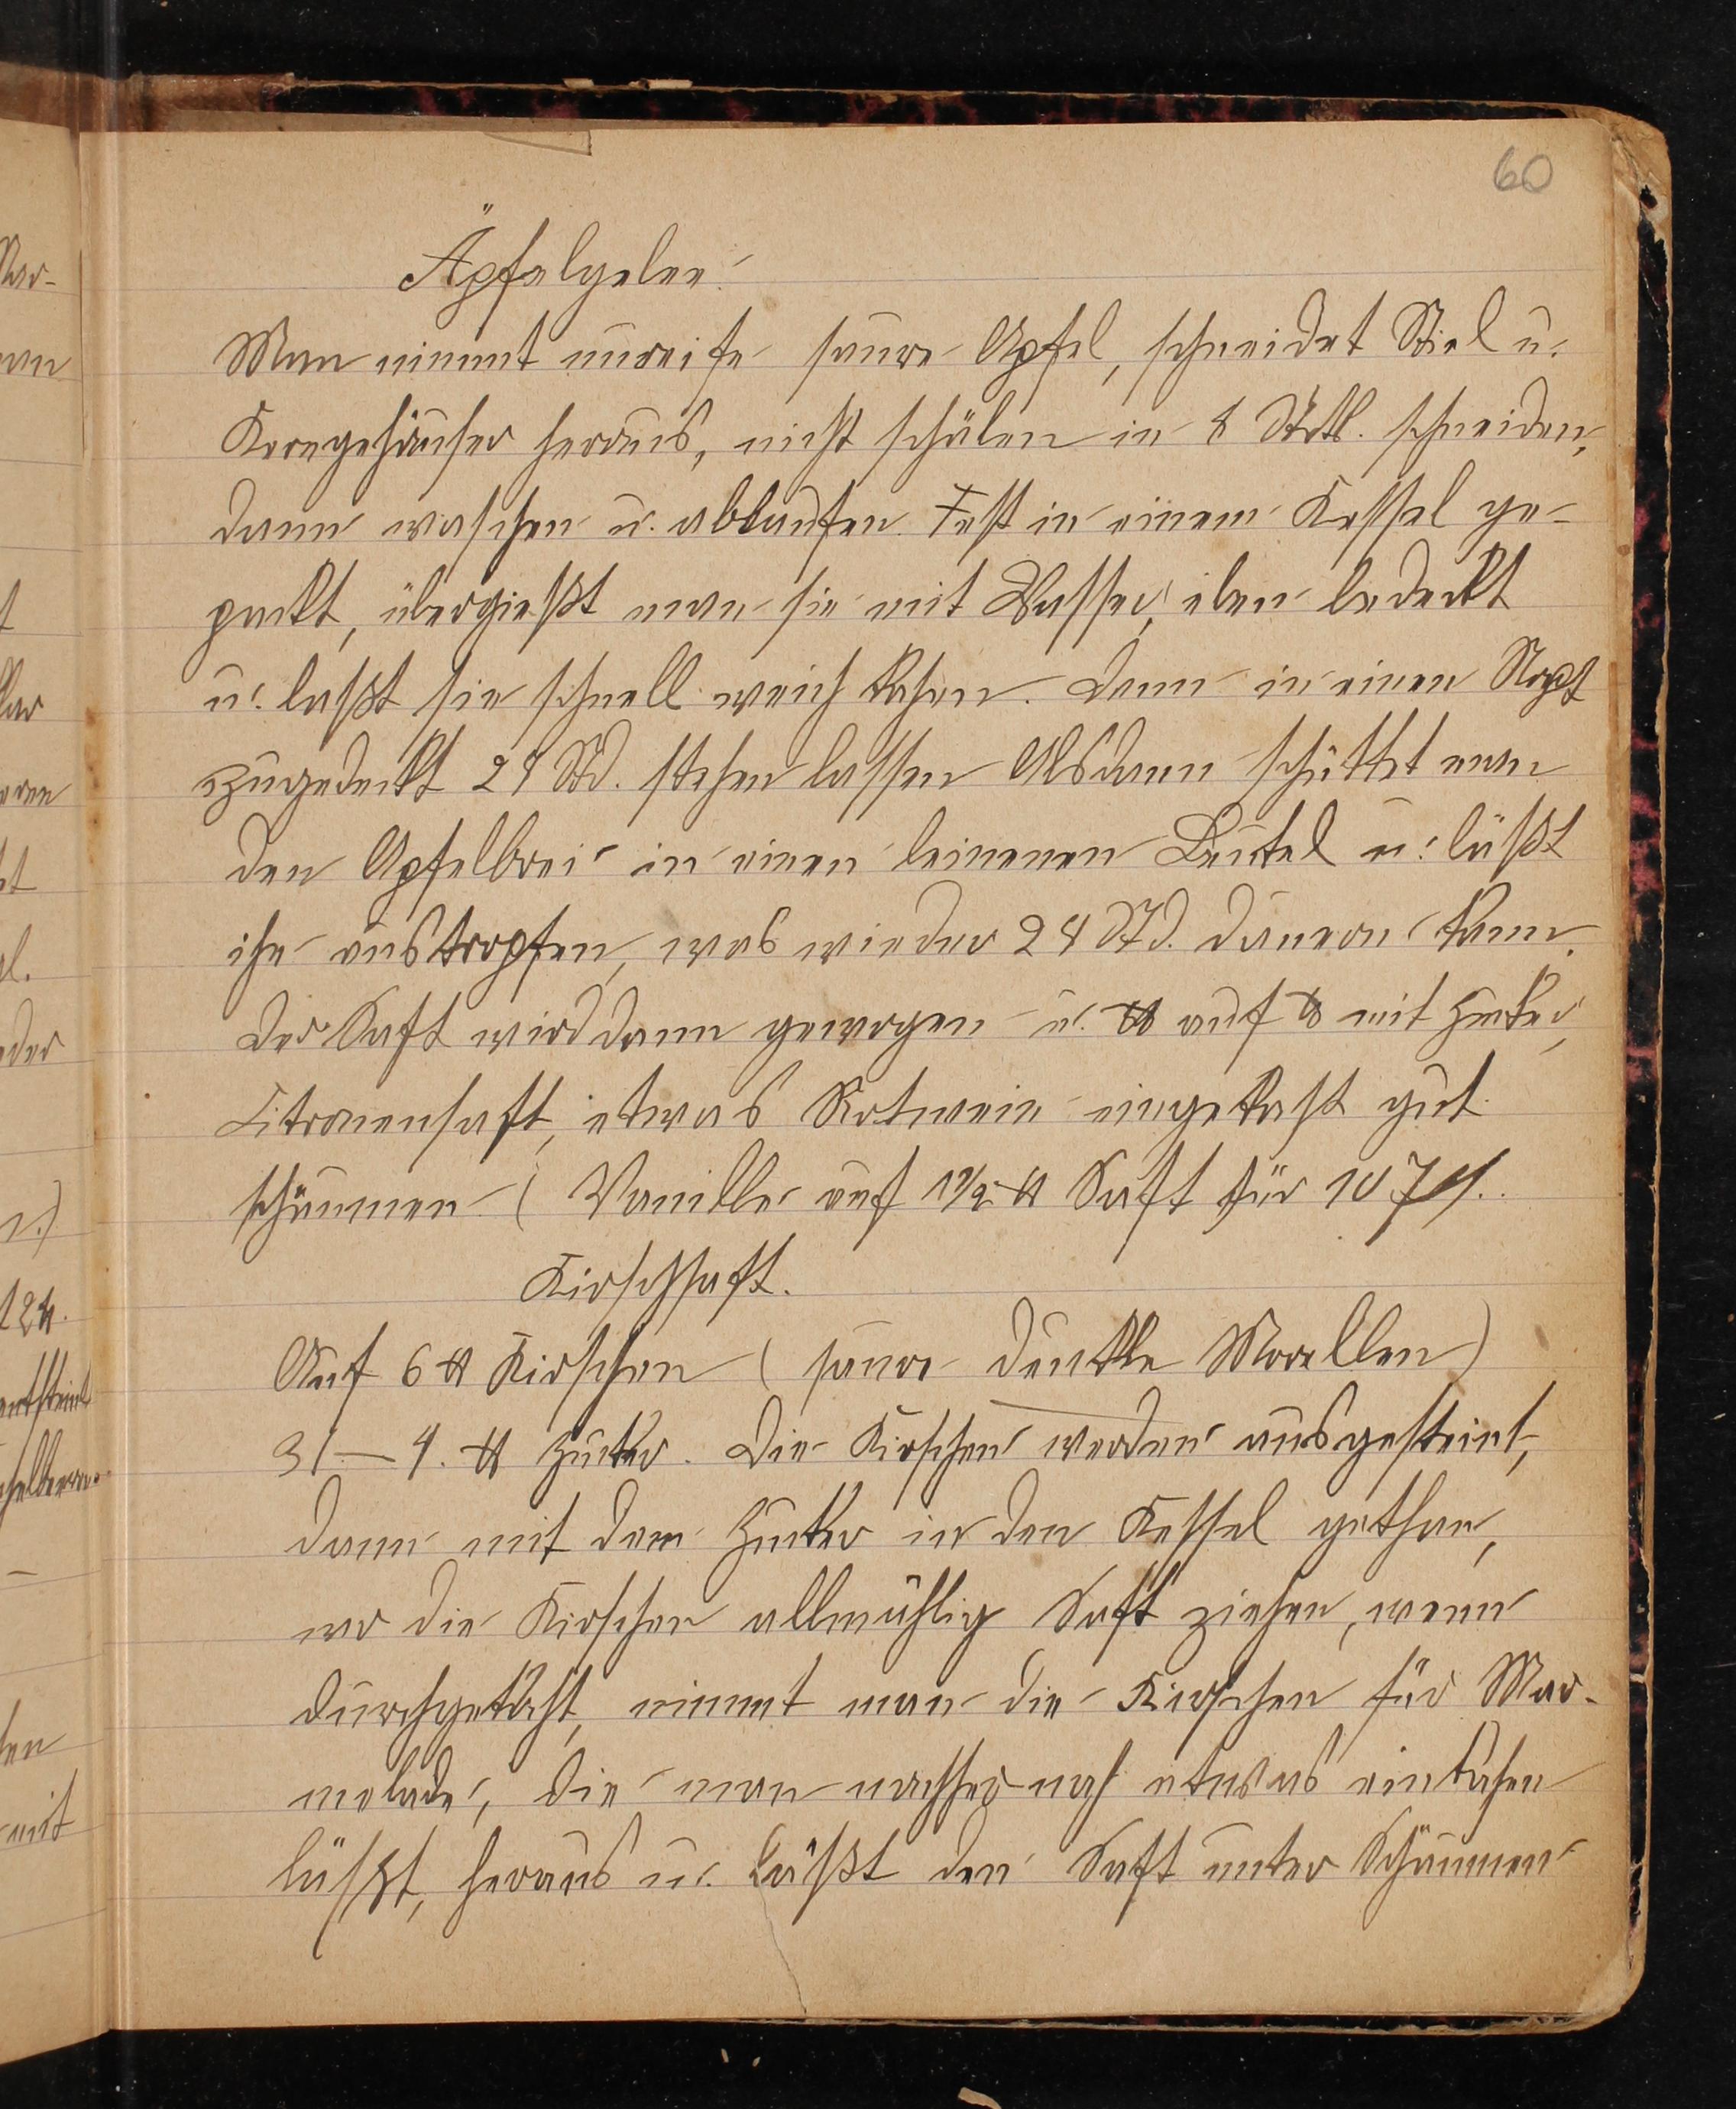 60
Äpfelgelee.
Man nimmt unreife saure Apfel, schneidet Stiel u.
Korngehäuser heraus, nicht schälen in 8 Stck. schneiden,
dann waschen u. ablaufen. Fest in einem Kessel ge-
packt, übergießt man sie mit Wasser, eben bedeckt
u. laßt sie schnell weich kochen. Dann in einen Topf
zugedeckt 24 Std. stehen lassen Alsdann schüttet man
den Apfelbrei in einen leinenen Beutel u. läßt
ihn austropfen, was wieder 24 Std. dauern kann.
Der Saft wird dann gewogen u. ℔ auf ℔ mit Zucker,
Citronensaft, etwas Rotwein eingekocht gut
schäumen (Vanille auf 1½ ℔ Saft für 10 ₰.
Kirschsaft.
Auf 6 ℔ Kirschen (saure dunkle Morellen)
3 – 4. ℔ Zucker. Die Kirschen werden ausgesteint,
dann mit dem Zucker in den Kessel gethan,
wo die Kirschen allmählig Saft ziehen, wenn
durchgekocht, nimmt man die Kirschen für Mar-
melade, die man nachher noch etwas einkochen
läßt, heraus u. läßt den Saft unter Schäumen